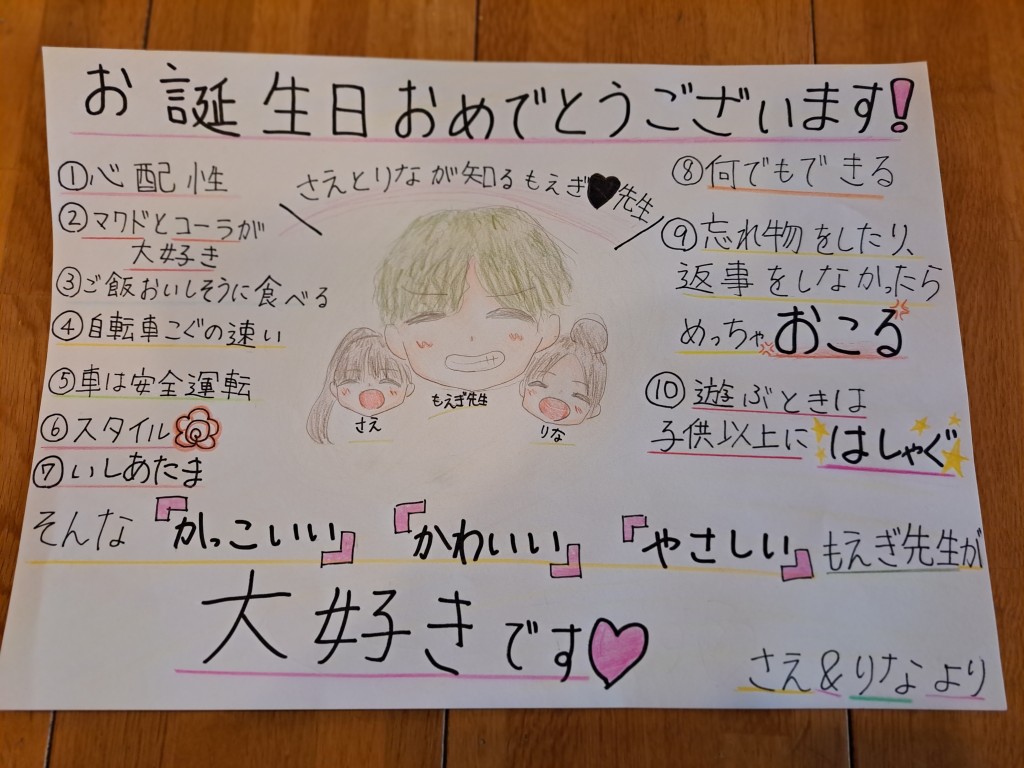 お誕生日おめでとうございます!
さえとりなが知るもえぎ♥先生
①心配性
②マクドとコーラが
大好き
③ご飯おいしそうに食べる
④自転車こぐの速い
⑤車は安全運転
⑥スタイル
⑦いしあたま
もえぎ先生
さえ
りな
⑧何でもできる
⑨忘れ物をしたり、
返事をしなかったら
めっちゃおこる
⑩遊ぶときは
子供以上にはしゃぐ
そんな『かっこいい』『かわいい』『やさしい』もえぎ先生が
大好きです♥
さえ&りなより